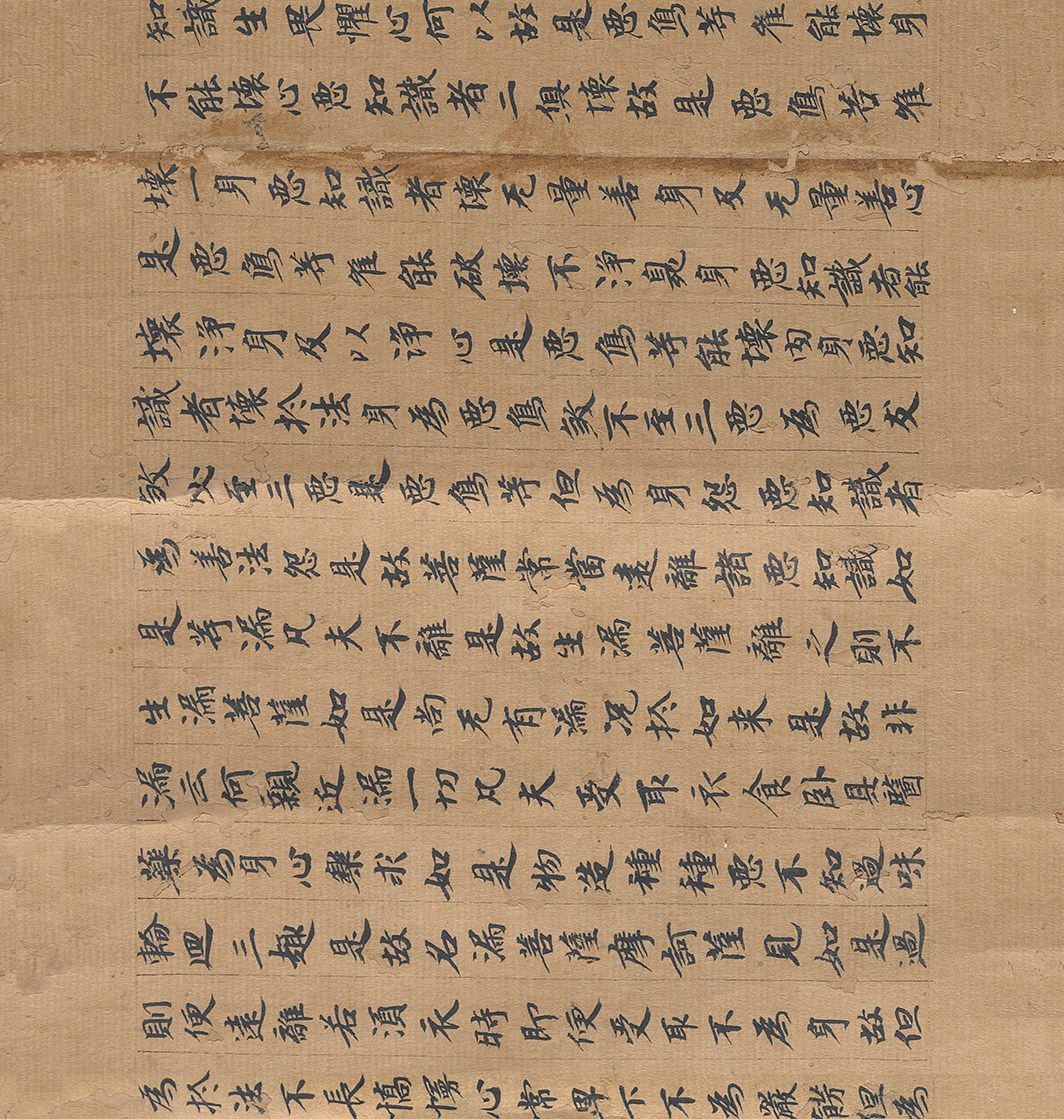 知識生畏懼心何以故是惡象等唯能壞身
不能壞心惡知識者二俱壞故是惡象等唯
壞一身惡知識者壞无量善身及无量善心
是惡象等唯能破壞不淨臭身惡知識者能
壞淨身及以淨心是惡象等能壞肉身惡知
識者壞於法身為惡象煞不至三惡為惡友
煞必至三惡是惡象等但為身怨惡知識者
為善法怨是故菩薩常當遠離諸惡知識如
是等漏凡夫不離是故生漏菩薩離之則不
生漏菩薩如是尚无有漏況於如来是故非
漏云何親近漏一切凡夫受取衣食卧具醫
藥為身心樂求如是物造種種惡不知過味
輪迴三趣是故名漏菩薩摩訶薩見如是過
則便遠離若湏衣時即便受取不為身故但
為於法不長憍慢心常卑下不為嚴餝但為